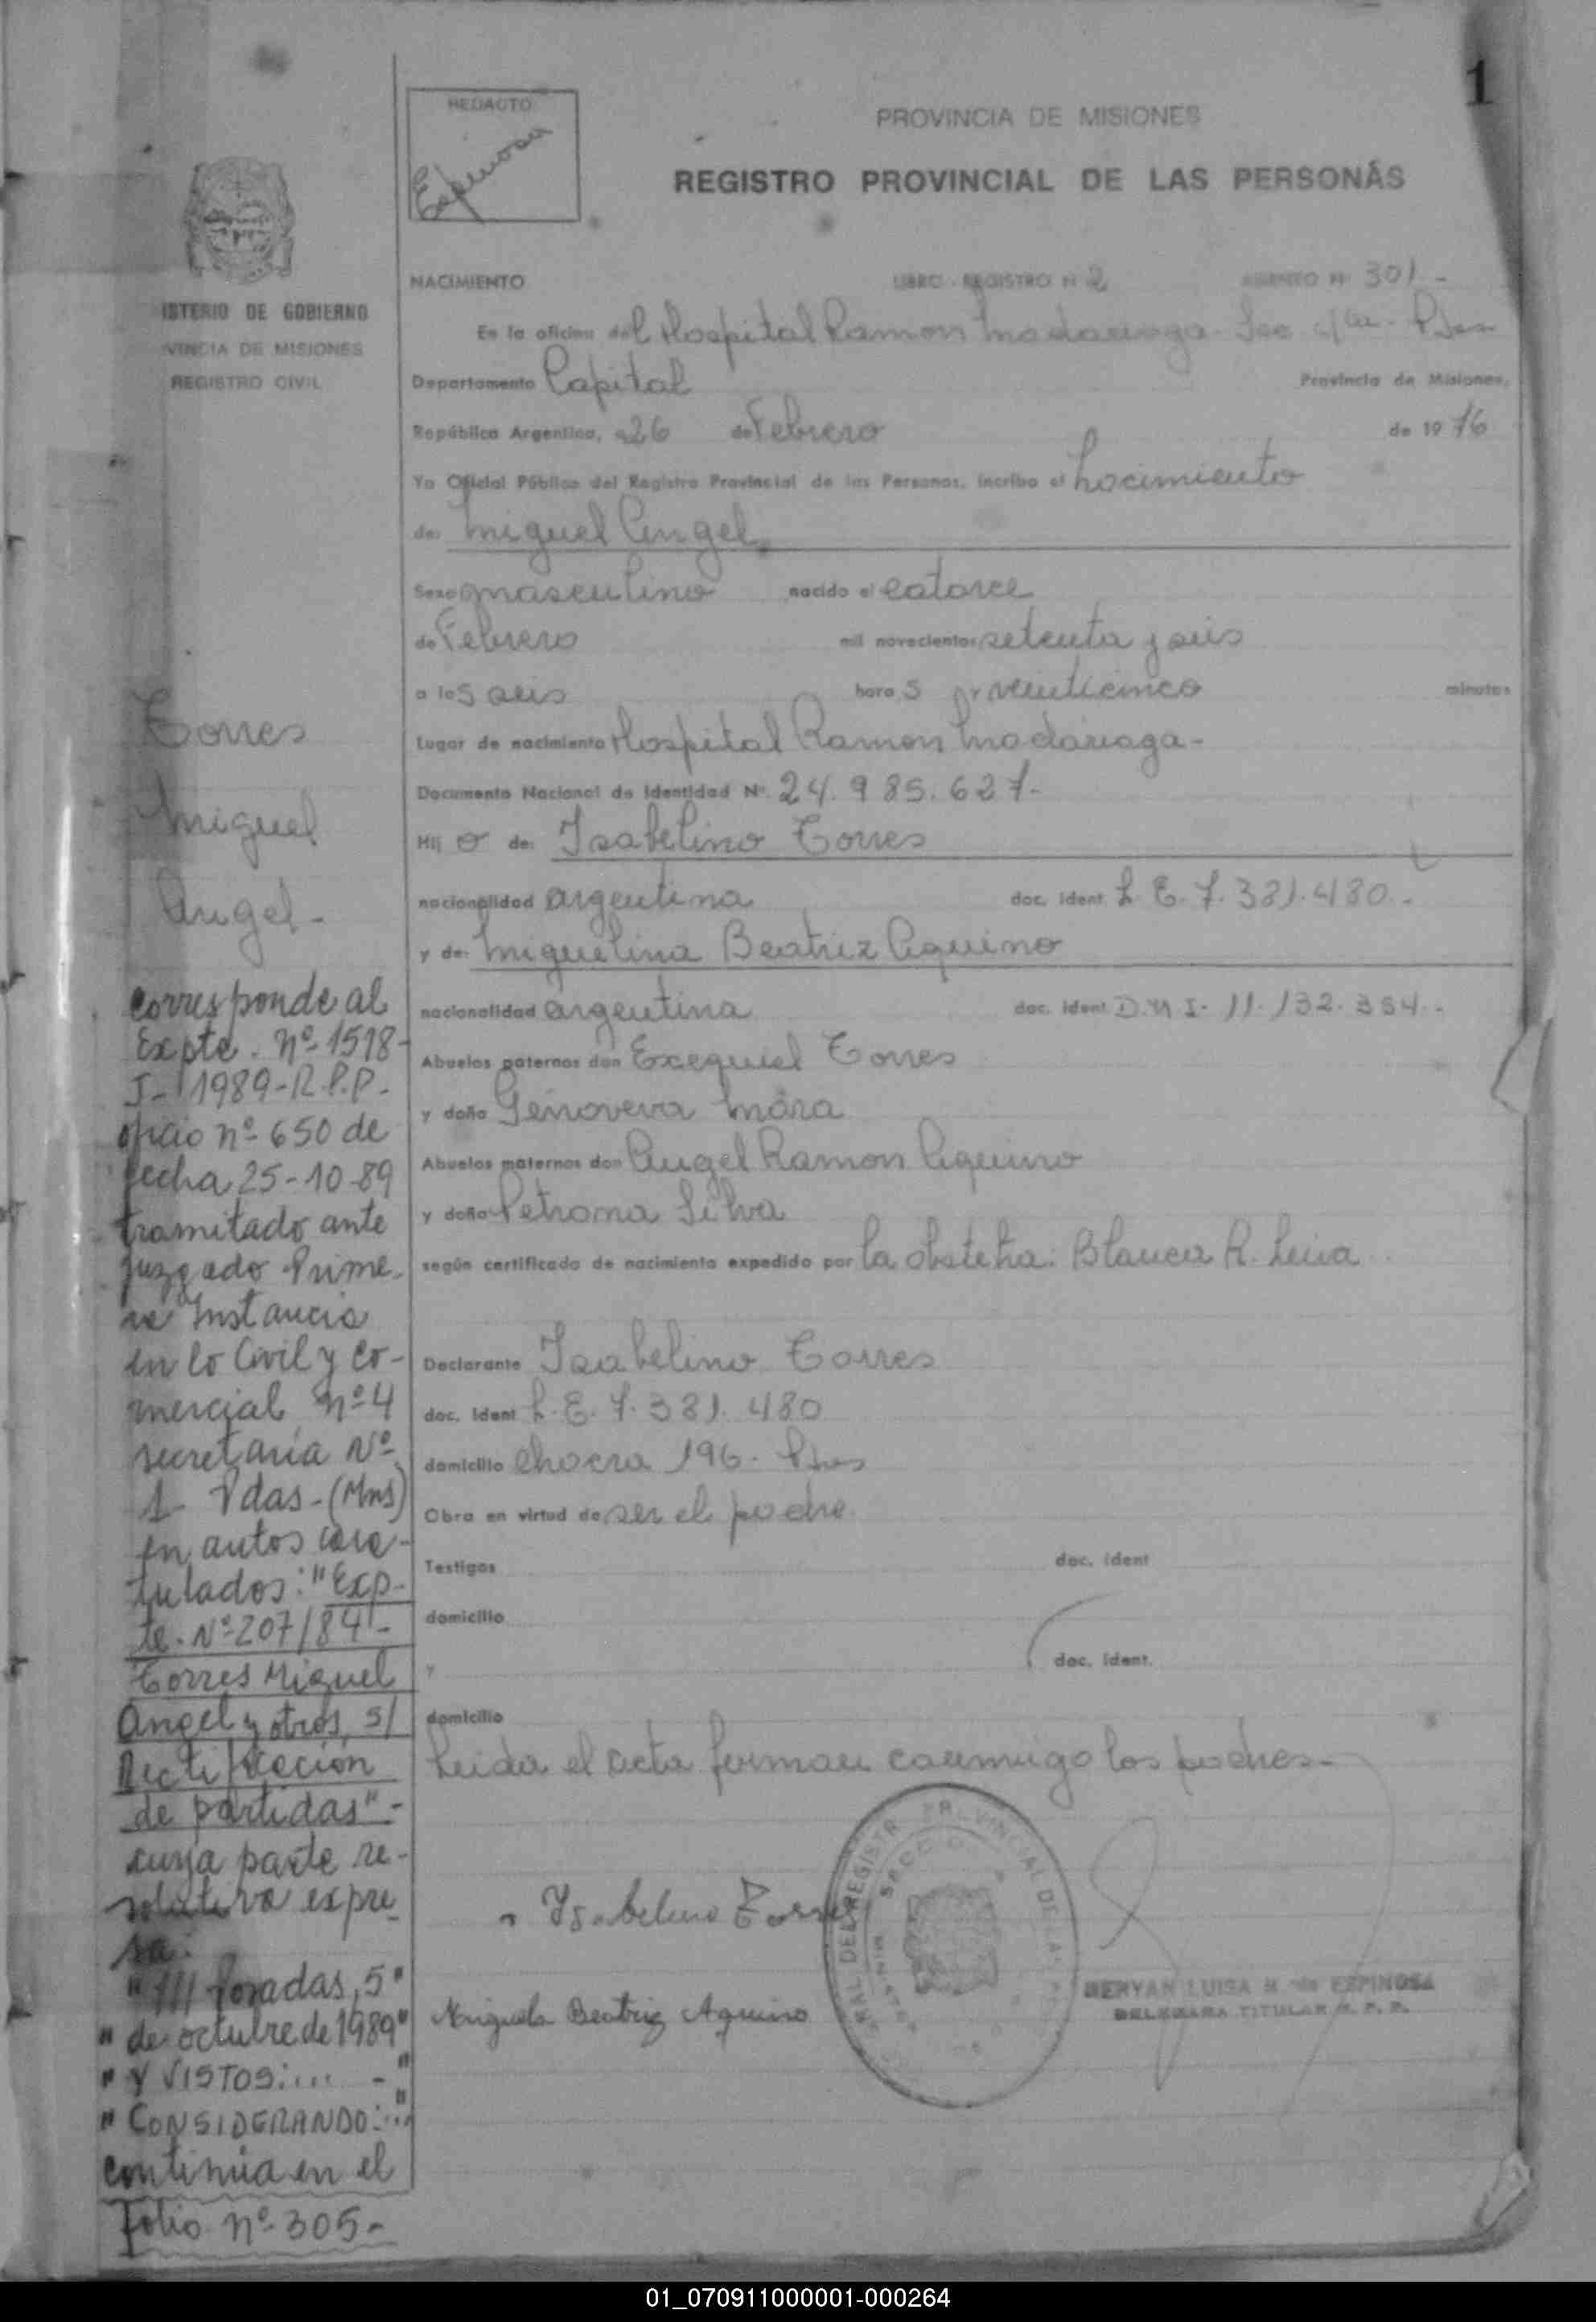 1
REDACTO
Espinosa
PROVINCIA DE MISIONES
REGISTRO PROVINCIAL DE LAS PERSONAS
ISTERIO DE GOBIERNO
VINCIA DE MISIONES
REGISTRO CIVIL
NACIMIENTO LIBRO - REGISTRO Nº 2 ASIENTO Nº 301 -
En la oficina del Hospital Ramon Madariaga - Sec
Departamento Capital Provincia de Misiones,
República Argentina, a 26 de Febrero de 19 76
Yo Oficial Público del Registro Provincial de las Personas, incribo el Nacimiento
de: Miguel Angel
Sexo masculino nacido el catorce
de Febrero mil novecientos setenta y seis
a las seis horas y veinticinco minutos
Lugar de nacimiento Hospital Ramon Madariaga -
Documento Nacional de Identidad Nº. 24.985.627.-
Hij o de: Isabelino Torres
nacionalidad argentina doc. ident. L. E. 7.381.480.-
y de: Miguelina Beatriz Aquino
nacionalidad argentina doc. ident. D.N.I- 11.132.354.-
Abuelos paternos don Exequiel Torres
y doña Genoveva Mora
Abuelos maternos don Angel Ramon Aquino
y doña Petrona Silva
según certificado de nacimiento expedido por la obstetra: Blanca R. Leiva
Declarante Isabelino Torres
doc. ident L.E. 7.381.480
domicilio chacra 196- Pdas
Obra en virtud de ser el padre
Testigos doc. ident
domicilio
y doc. ident.
domicilio
Leida el acta firman conmigo los padres -
Isabelino Torres
Miguela Beatriz Aquino
MERYAN LUISA M. de ESPINOSA
DELEGADA TITULAR R. P. P.
Torres
Miguel
Angel -
Corresponde al
Expte. Nº-1518-
I-1989-R.P.P.-
oficio nº-650 de
fecha 25-10-89
tramitado ante
juzgado Prime-
ra Instancia
en lo Civil y Co-
mercial nº-4
secretaría Nº
1- Pdas-(Mns)
en autos cara-
tulados: "Exp-
te. Nº-207/84-
Torres Miguel
Angel y otros, s/
Rectificación
de partidas"-
cuya parte re-
solutiva expre-
sa:
"/// Posadas, 5"
" de octubre de 1989"
" Y VISTOS:... - "
" CONSIDERANDO:..."
continúa en el
Folio nº-305-
01_070911000001-000264